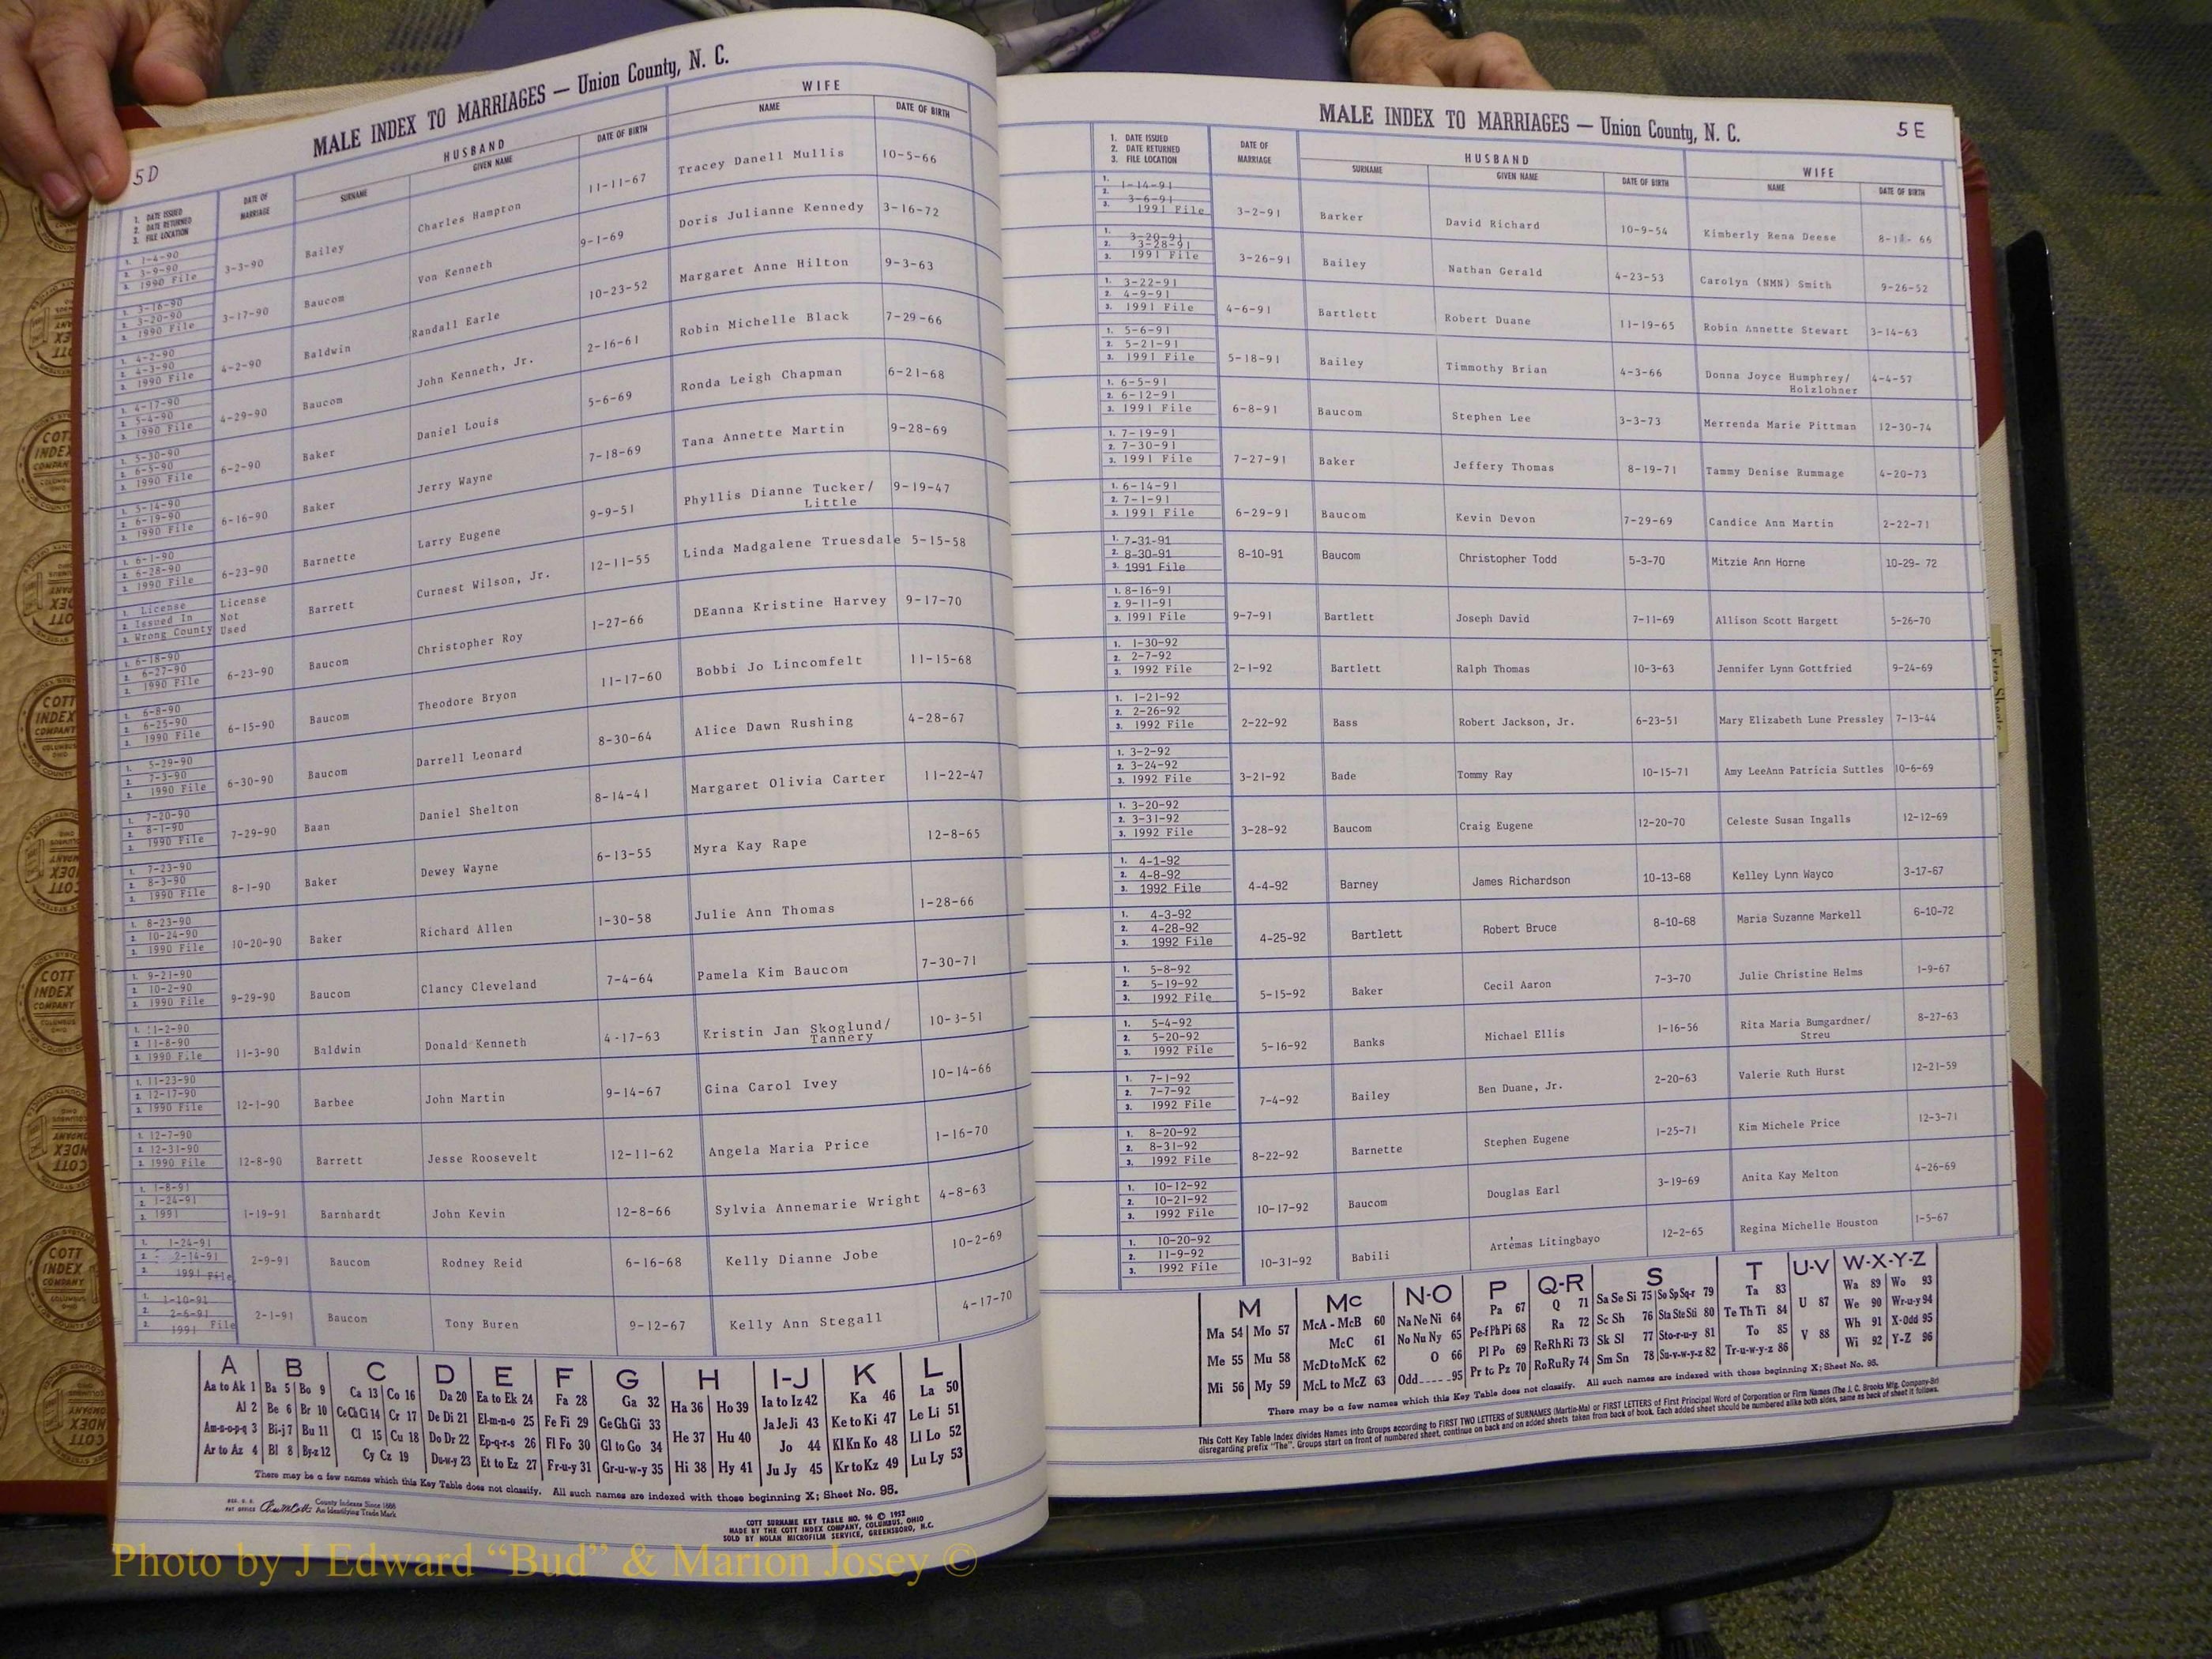 5D
MALE INDEX TO MARRIAGES — Union County, N. C.
1. DATE ISSUED
2. DATE RETURNED
3. FILE LOCATION
DATE OF MARRIAGE
HUSBAND
SURNAME GIVEN NAME DATE OF BIRTH
WIFE
NAME DATE OF BIRTH
1. 1-4-90 2. 3-9-90 3. 1990 File 3-3-90 Bailey Charles Hampton 11-11-67 Tracey Danell Mullis 10-5-66
1. 3-16-90 2. 3-20-90 3. 1990 File 3-17-90 Baucom Von Kenneth 9-1-69 Doris Julianne Kennedy 3-16-72
1. 4-2-90 2. 4-3-90 3. 1990 File 4-2-90 Baldwin Randall Earle 10-23-52 Margaret Anne Hilton 9-3-63
1. 4-17-90 2. 5-4-90 3. 1990 File 4-29-90 Baucom John Kenneth, Jr. 2-16-61 Robin Michelle Black 7-29-66
1. 5-30-90 2. 6-5-90 3. 1990 File 6-2-90 Baker Daniel Louis 5-6-69 Ronda Leigh Chapman 6-21-68
1. 5-14-90 2. 6-19-90 3. 1990 File 6-16-90 Baker Jerry Wayne 7-18-69 Tana Annette Martin 9-28-69
1. 6-1-90 2. 6-28-90 3. 1990 File 6-23-90 Barnette Larry Eugene 9-9-51 Phyllis Dianne Tucker/ Little 9-19-47
1. License 2. Issued In 3. Wrong County License Not Used Barrett Curnest Wilson, Jr. 12-11-55 Linda Madgalene Truesdale 5-15-58
1. 6-18-90 2. 6-27-90 3. 1990 File 6-23-90 Baucom Christopher Roy 1-27-66 DEanna Kristine Harvey 9-17-70
1. 6-8-90 2. 6-25-90 3. 1990 File 6-15-90 Baucom Theodore Bryon 11-17-60 Bobbi Jo Lincomfelt 11-15-68
1. 5-29-90 2. 7-3-90 3. 1990 File 6-30-90 Baucom Darrell Leonard 8-30-64 Alice Dawn Rushing 4-28-67
1. 7-20-90 2. 8-1-90 3. 1990 File 7-29-90 Baan Daniel Shelton 8-14-41 Margaret Olivia Carter 11-22-47
1. 7-23-90 2. 8-3-90 3. 1990 File 8-1-90 Baker Dewey Wayne 6-13-55 Myra Kay Rape 12-8-65
1. 8-23-90 2. 10-24-90 3. 1990 File 10-20-90 Baker Richard Allen 1-30-58 Julie Ann Thomas 1-28-66
1. 9-21-90 2. 10-2-90 3. 1990 File 9-29-90 Baucom Clancy Cleveland 7-4-64 Pamela Kim Baucom 7-30-71
1. 11-2-90 2. 11-8-90 3. 1990 File 11-3-90 Baldwin Donald Kenneth 4-17-63 Kristin Jan Skoglund/ Tannery 10-3-51
1. 11-23-90 2. 12-17-90 3. 1990 File 12-1-90 Barbee John Martin 9-14-67 Gina Carol Ivey 10-14-66
1. 12-7-90 2. 12-31-90 3. 1990 File 12-8-90 Barrett Jesse Roosevelt 12-11-62 Angela Maria Price 1-16-70
1. 1-8-91 2. 1-24-91 3. 1991 1-19-91 Barnhardt John Kevin 12-8-66 Sylvia Annemarie Wright 4-8-63
1. 1-24-91 2. 2-14-91 3. 1991 File 2-9-91 Baucom Rodney Reid 6-16-68 Kelly Dianne Jobe 10-2-69
1. 1-10-91 2. 2-6-91 3. 1991 File 2-1-91 Baucom Tony Buren 9-12-67 Kelly Ann Stegall 4-17-70
A B C D E F G H I-J K L
Aa to Ak 1 Ba 5 Bo 9 Ca 13 Co 16 Da 20 Ea to Ek 24 Fa 28 Ga 32 Ha 36 Ho 39 Ia to Iz 42 Ka 46 La 50
Al 2 Be 6 Br 10 Ce Ch Ci 14 Cr 17 De Di 21 El-m-n-o 25 Fe Fi 29 Ge Gh Gi 33 He 37 Hu 40 Ja Je Ji 43 Ke to Ki 47 Le Li 51
Am-n-o-p-q 3 Bi-j 7 Bu 11 Cl 15 Cu 18 Do Dr 22 Ep-q-r-s 26 Fl Fo 30 Gl to Go 34 Hi 38 Hy 41 Jo 44 Kl Kn Ko 48 Ll Lo 52
Ar to Az 4 Bl 8 By-z 12 Cy Cz 19 Du-w-y 23 Et to Ez 27 Fr-u-y 31 Gr-u-w-y 35 Ju Jy 45 Kr to Kz 49 Lu Ly 53
There may be a few names which this Key Table does not classify. All such names are indexed with those beginning X; Sheet No. 95.
REG. U. S. PAT OFFICE
County Indexes Since 1888
An Identifying Trade Mark
COTT SURNAME KEY TABLE NO. 96 © 1952
MADE BY THE COTT INDEX COMPANY, COLUMBUS, OHIO
SOLD BY NOLAN MICROFILM SERVICE, GREENSBORO, N.C.
MALE INDEX TO MARRIAGES — Union County, N. C.
5E
1. DATE ISSUED
2. DATE RETURNED
3. FILE LOCATION
DATE OF MARRIAGE
HUSBAND
SURNAME GIVEN NAME DATE OF BIRTH
WIFE
NAME DATE OF BIRTH
1. 1-14-91 2. 3-6-91 3. 1991 File 3-2-91 Barker David Richard 10-9-54 Kimberly Rena Deese 66
1. 3-20-91 2. 3-28-91 3. 1991 File 3-26-91 Bailey Nathan Gerald 4-23-53 Carolyn (NMN) Smith 9-26-52
1. 3-22-91 2. 4-9-91 3. 1991 File 4-6-91 Bartlett Robert Duane 11-19-65 Robin Annette Stewart 3-14-63
1. 5-6-91 2. 5-21-91 3. 1991 File 5-18-91 Bailey Timmothy Brian 4-3-66 Donna Joyce Humphrey/ Holzlohner 4-4-57
1. 6-5-91 2. 6-12-91 3. 1991 File 6-8-91 Baucom Stephen Lee 3-3-73 Merrenda Marie Pittman 12-30-74
1. 7-19-91 2. 7-30-91 3. 1991 File 7-27-91 Baker Jeffery Thomas 8-19-71 Tammy Denise Rummage 4-20-73
1. 6-14-91 2. 7-1-91 3. 1991 File 6-29-91 Baucom Kevin Devon 7-29-69 Candice Ann Martin 2-22-71
1. 7-31-91 2. 8-30-91 3. 1991 File 8-10-91 Baucom Christopher Todd 5-3-70 Mitzie Ann Horne 10-29- 72
1. 8-16-91 2. 9-11-91 3. 1991 File 9-7-91 Bartlett Joseph David 7-11-69 Allison Scott Hargett 5-26-70
1. 1-30-92 2. 2-7-92 3. 1992 File 2-1-92 Bartlett Ralph Thomas 10-3-63 Jennifer Lynn Gottfried 9-24-69
1. 1-21-92 2. 2-26-92 3. 1992 File 2-22-92 Bass Robert Jackson, Jr. 6-23-51 Mary Elizabeth Lune Pressley 7-13-44
1. 3-2-92 2. 3-24-92 3. 1992 File 3-21-92 Bade Tommy Ray 10-15-71 Amy LeeAnn Patricia Suttles 10-6-69
1. 3-20-92 2. 3-31-92 3. 1992 File 3-28-92 Baucom Craig Eugene 12-20-70 Celeste Susan Ingalls 12-12-69
1. 4-1-92 2. 4-8-92 3. 1992 File 4-4-92 Barney James Richardson 10-13-68 Kelley Lynn Wayco 3-17-67
1. 4-3-92 2. 4-28-92 3. 1992 File 4-25-92 Bartlett Robert Bruce 8-10-68 Maria Suzanne Markell 6-10-72
1. 5-8-92 2. 5-19-92 3. 1992 File 5-15-92 Baker Cecil Aaron 7-3-70 Julie Christine Helms 1-9-67
1. 5-4-92 2. 5-20-92 3. 1992 File 5-16-92 Banks Michael Ellis 1-16-56 Rita Maria Bumgardner/ Streu 8-27-63
1. 7-1-92 2. 7-7-92 3. 1992 File 7-4-92 Bailey Ben Duane, Jr. 2-20-63 Valerie Ruth Hurst 12-21-59
1. 8-20-92 2. 8-31-92 3. 1992 File 8-22-92 Barnette Stephen Eugene 1-25-71 Kim Michele Price 12-3-71
1. 10-12-92 2. 10-21-92 3. 1992 File 10-17-92 Baucom Douglas Earl 3-19-69 Anita Kay Melton 4-26-69
1. 10-20-92 2. 11-9-92 3. 1992 File 10-31-92 Babili Artemas Litingbayo 12-2-65 Regina Michelle Houston 1-5-67
M Mc N-O P Q-R S T U-V W-X-Y-Z
Ma 54 Mo 57 McA - McB 60 Na Ne Ni 64 Pa 67 Q 71 Sa Se Si 75 So Sp Sq-r 79 Ta 83 U 87 Wa 89 Wo 93
Me 55 Mu 58 McC 61 No Nu Ny 65 Pe-f Ph Pi 68 Ra 72 Sc Sh 76 Sta Ste Sti 80 Te Th Ti 84 V 88 We 90 Wr-u-y 94
Mi 56 My 59 McD to McK 62 O 66 Pl Po 69 Re Rh Ri 73 Sk Sl 77 Sto-r-u-y 81 To 85 Wh 91 X-Odd 95
McL to McZ 63 Odd 95 Pr to Pz 70 Ro Ru Ry 74 Sm Sn 78 Su-v-w-y-z 82 Tr-u-w-y-z 86 Wi 92 Y-Z 96
There may be a few names which this Key Table does not classify. All such names are indexed with those beginning X; Sheet No. 95.
This Cott Key Table Index divides Names into Groups according to FIRST TWO LETTERS of SURNAMES (Martin-Ma) or FIRST LETTERS of First Principal Word of Corporation or Firm Names (The J. C. Brooks Mfg. Company-Br)
disregarding prefix "The". Groups start on front of numbered sheet, continue on back and on added sheets taken from back of book. Each added sheet should be numbered alike both sides, same as back of sheet it follows.
Extra Sheets
COTT INDEX COMPANY COLUMBUS OHIO
Photo by J Edward “Bud” & Marion Josey ©